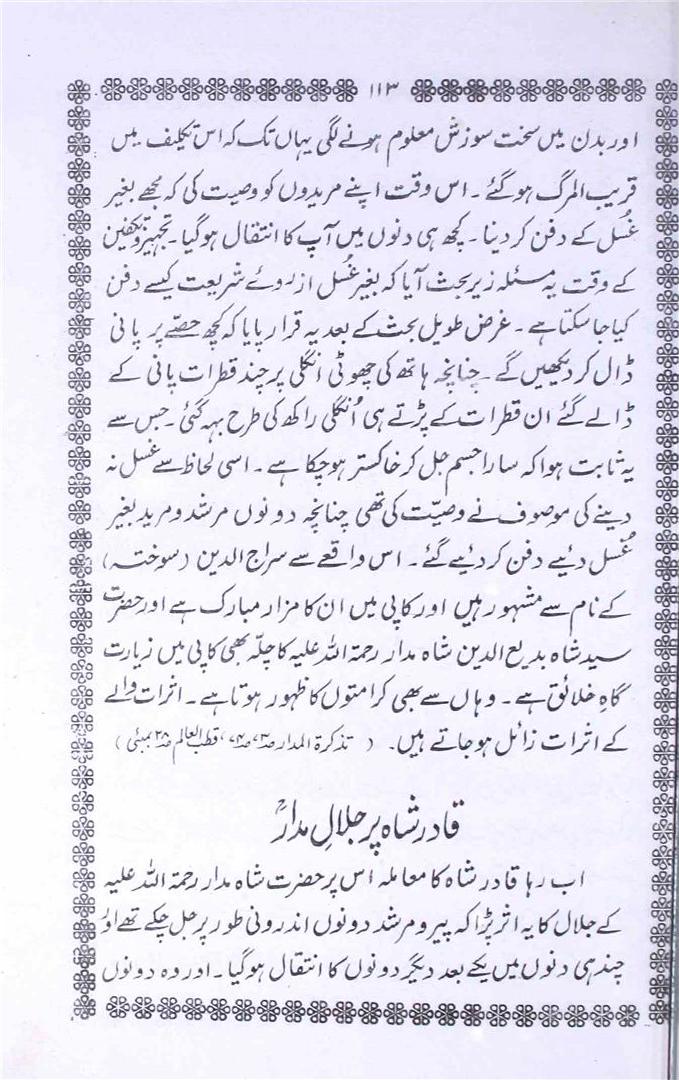 ۱۱۳
اور بدن میں سخت سوزش معلوم ہونے لگی یہاں تک کہ اس تکلیف میں
قریب المرگ ہو گئے ۔ اس وقت اپنے مریدوں کو وصیت کی کہ مجھے بغیر
غُسل کے دفن کر دینا ۔ کچھ ہی دنوں میں آپ کا انتقال ہو گیا ۔ تجہیز و تکفین
کے وقت یہ مسئلہ زیر بحث آیا کہ بغیر غُسل از روئے شریعت کیسے دفن
کیا جا سکتا ہے ۔ غرض طویل بحث کے بعد یہ قرار پایا کہ کچھ حصّے پر پانی
ڈال کر دیکھیں گے ۔ چنانچہ ہاتھ کی چھوٹی انگلی پر چند قطرات پانی کے
ڈالے گئے ان قطرات کے پڑتے ہی اُنگلی راکھ کی طرح بہہ گئی ۔ جس سے
یہ ثابت ہوا کہ سارا جسم جل کر خاکستر ہو چکا ہے ۔ اسی لحاظ سے غسل نہ
دینے کی موصوف نے وصیّت کی تھی چنانچہ دونوں مرشد و مرید بغیر
غُسل دئیے دفن کر دئیے گئے ۔ اس واقعے سے سراج الدین (سوختہ)
کے نام سے مشہور ہیں اور کاپی میں ان کا مزار مبارک ہے اور حضرت
سید شاہ بدیع الدین شاہ مدار رحمۃ اللہ علیہ کا چلّہ بھی کاپی میں زیارت
گاہِ خلائق ہے ۔ وہاں سے بھی کرامتوں کا ظہور ہوتا ہے ۔ اثرات والے
کے اثرات زائل ہو جاتے ہیں۔ (تذکرۃ المدار ص۷۳، ص۷۴، قطب العالم ص۲۸ بمبئی)
قادر شاہ پر جلالِ مدارؒ
اب رہا قادر شاہ کا معاملہ اس پر حضرت شاہ مدار رحمۃ اللہ علیہ
کے جلال کا یہ اثر پڑا کہ پیر و مرشد دونوں اندرونی طور پر جل چکے تھے اور
چند ہی دنوں میں یکے بعد دیگر دونوں کا انتقال ہو گیا ۔ اور وہ دونوں